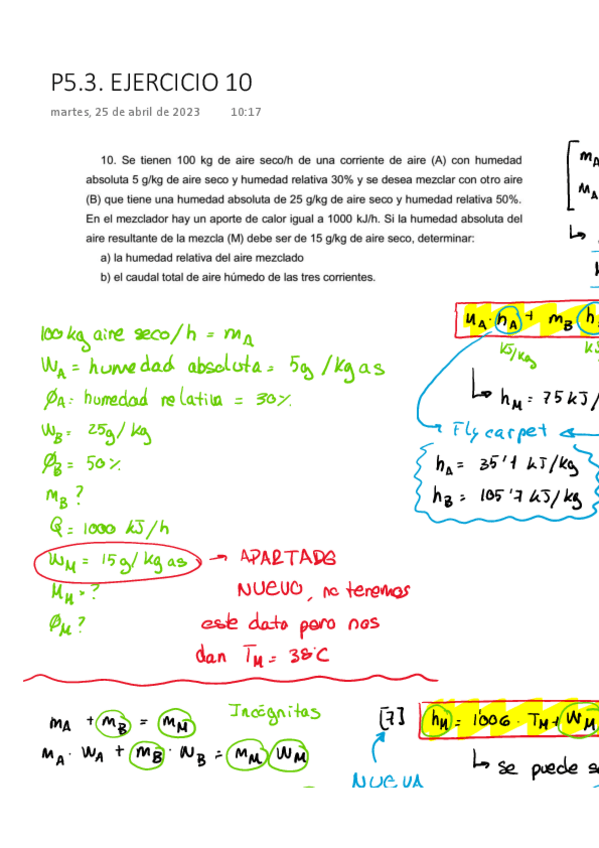 P5.3. EJERCICIO 10
martes, 25 de abril de 2023 10:17
10. Se tienen 100 kg de aire seco/h de una corriente de aire (A) con humedad
absoluta 5 g/kg de aire seco y humedad relativa 30% y se desea mezclar con otro aire
(B) que tiene una humedad absoluta de 25 g/kg de aire seco y humedad relativa 50%.
En el mezclador hay un aporte de calor igual a 1000 kJ/h. Si la humedad absoluta del
aire resultante de la mezcla (M) debe ser de 15 g/kg de aire seco, determinar:
a) la humedad relativa del aire mezclado
b) el caudal total de aire húmedo de las tres corrientes.
100 kg aire seco/h = mA
WA = humedad absoluta = 5g /kg as
ØA = humedad relativa = 30%
WB = 25g/kg
ØB = 50%
mB ?
Q = 1000 kJ/h
WM = 15g/kg as → APARTADO
NUEVO, no tenemos
este dato pero nos
dan TM = 38°C
MM = ?
ØM ?
mA + mB = mM Incógnitas
mA · WA + mB · WB = mM WM
mA
MA
↳
MA · hA + mB h
kJ/kg
↳ hM = 75 kJ/
Fly carpet ←
hA = 35'1 kJ/kg
hB = 105'7 kJ/kg
[7] hM = 1'006 · TM + WM
NUEVA
↳ se puede s